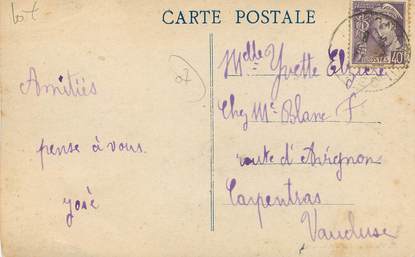 lot
CARTE POSTALE
07
Melle Yvette
Amitiés
Chez Mr Blanc F
pense à vous
route d'Avignon
José
Carpentras
Vaucluse
POSTES
40